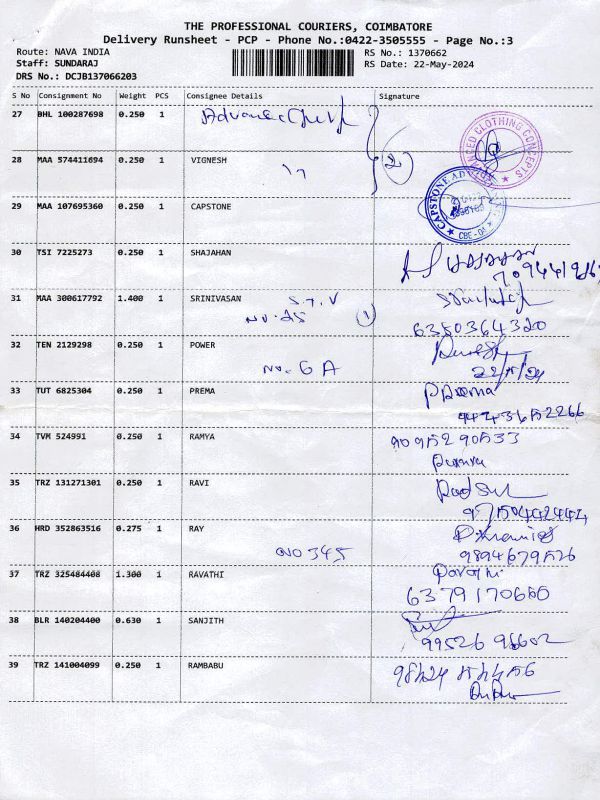 THE PROFESSIONAL COURIERS, COIMBATORE
Delivery Runsheet - PCP - Phone No.:0422-3505555 - Page No.:3
Route: NAVA INDIA
RS No.: 1370662
Staff: SUNDARAJ
RS Date: 22-May-2024
DRS No.: DCJB137066203
S No Consignment No Weight PCS Consignee Details Signature
27 BHL 100287698 0.250 1
28 MAA 574411694 0.250 1 VIGNESH
17
2
CLOTHING CONCEPTS
29 MAA 107695360 0.250 1 CAPSTONE
CAPSTONE
30 TSI 7225273 0.250 1 SHAJAHAN
31 MAA 300617792 1.400 1 SRINIVASAN S.T.V
No.25 1
6380364320
32 TEN 2129298 0.250 1 POWER
No. 6A
22/5/24
33 TUT 6825304 0.250 1 PREMA
Prema
34 TVM 524991 0.250 1 RAMYA
35 TRZ 131271301 0.250 1 RAVI
36 HRD 352863516 0.275 1 RAY
NO 345
9894679526
37 TRZ 325484408 1.300 1 RAVATHI
6379170660
38 BLR 140204400 0.630 1 SANJITH
99526 96602
39 TRZ 141004099 0.250 1 RAMBABU